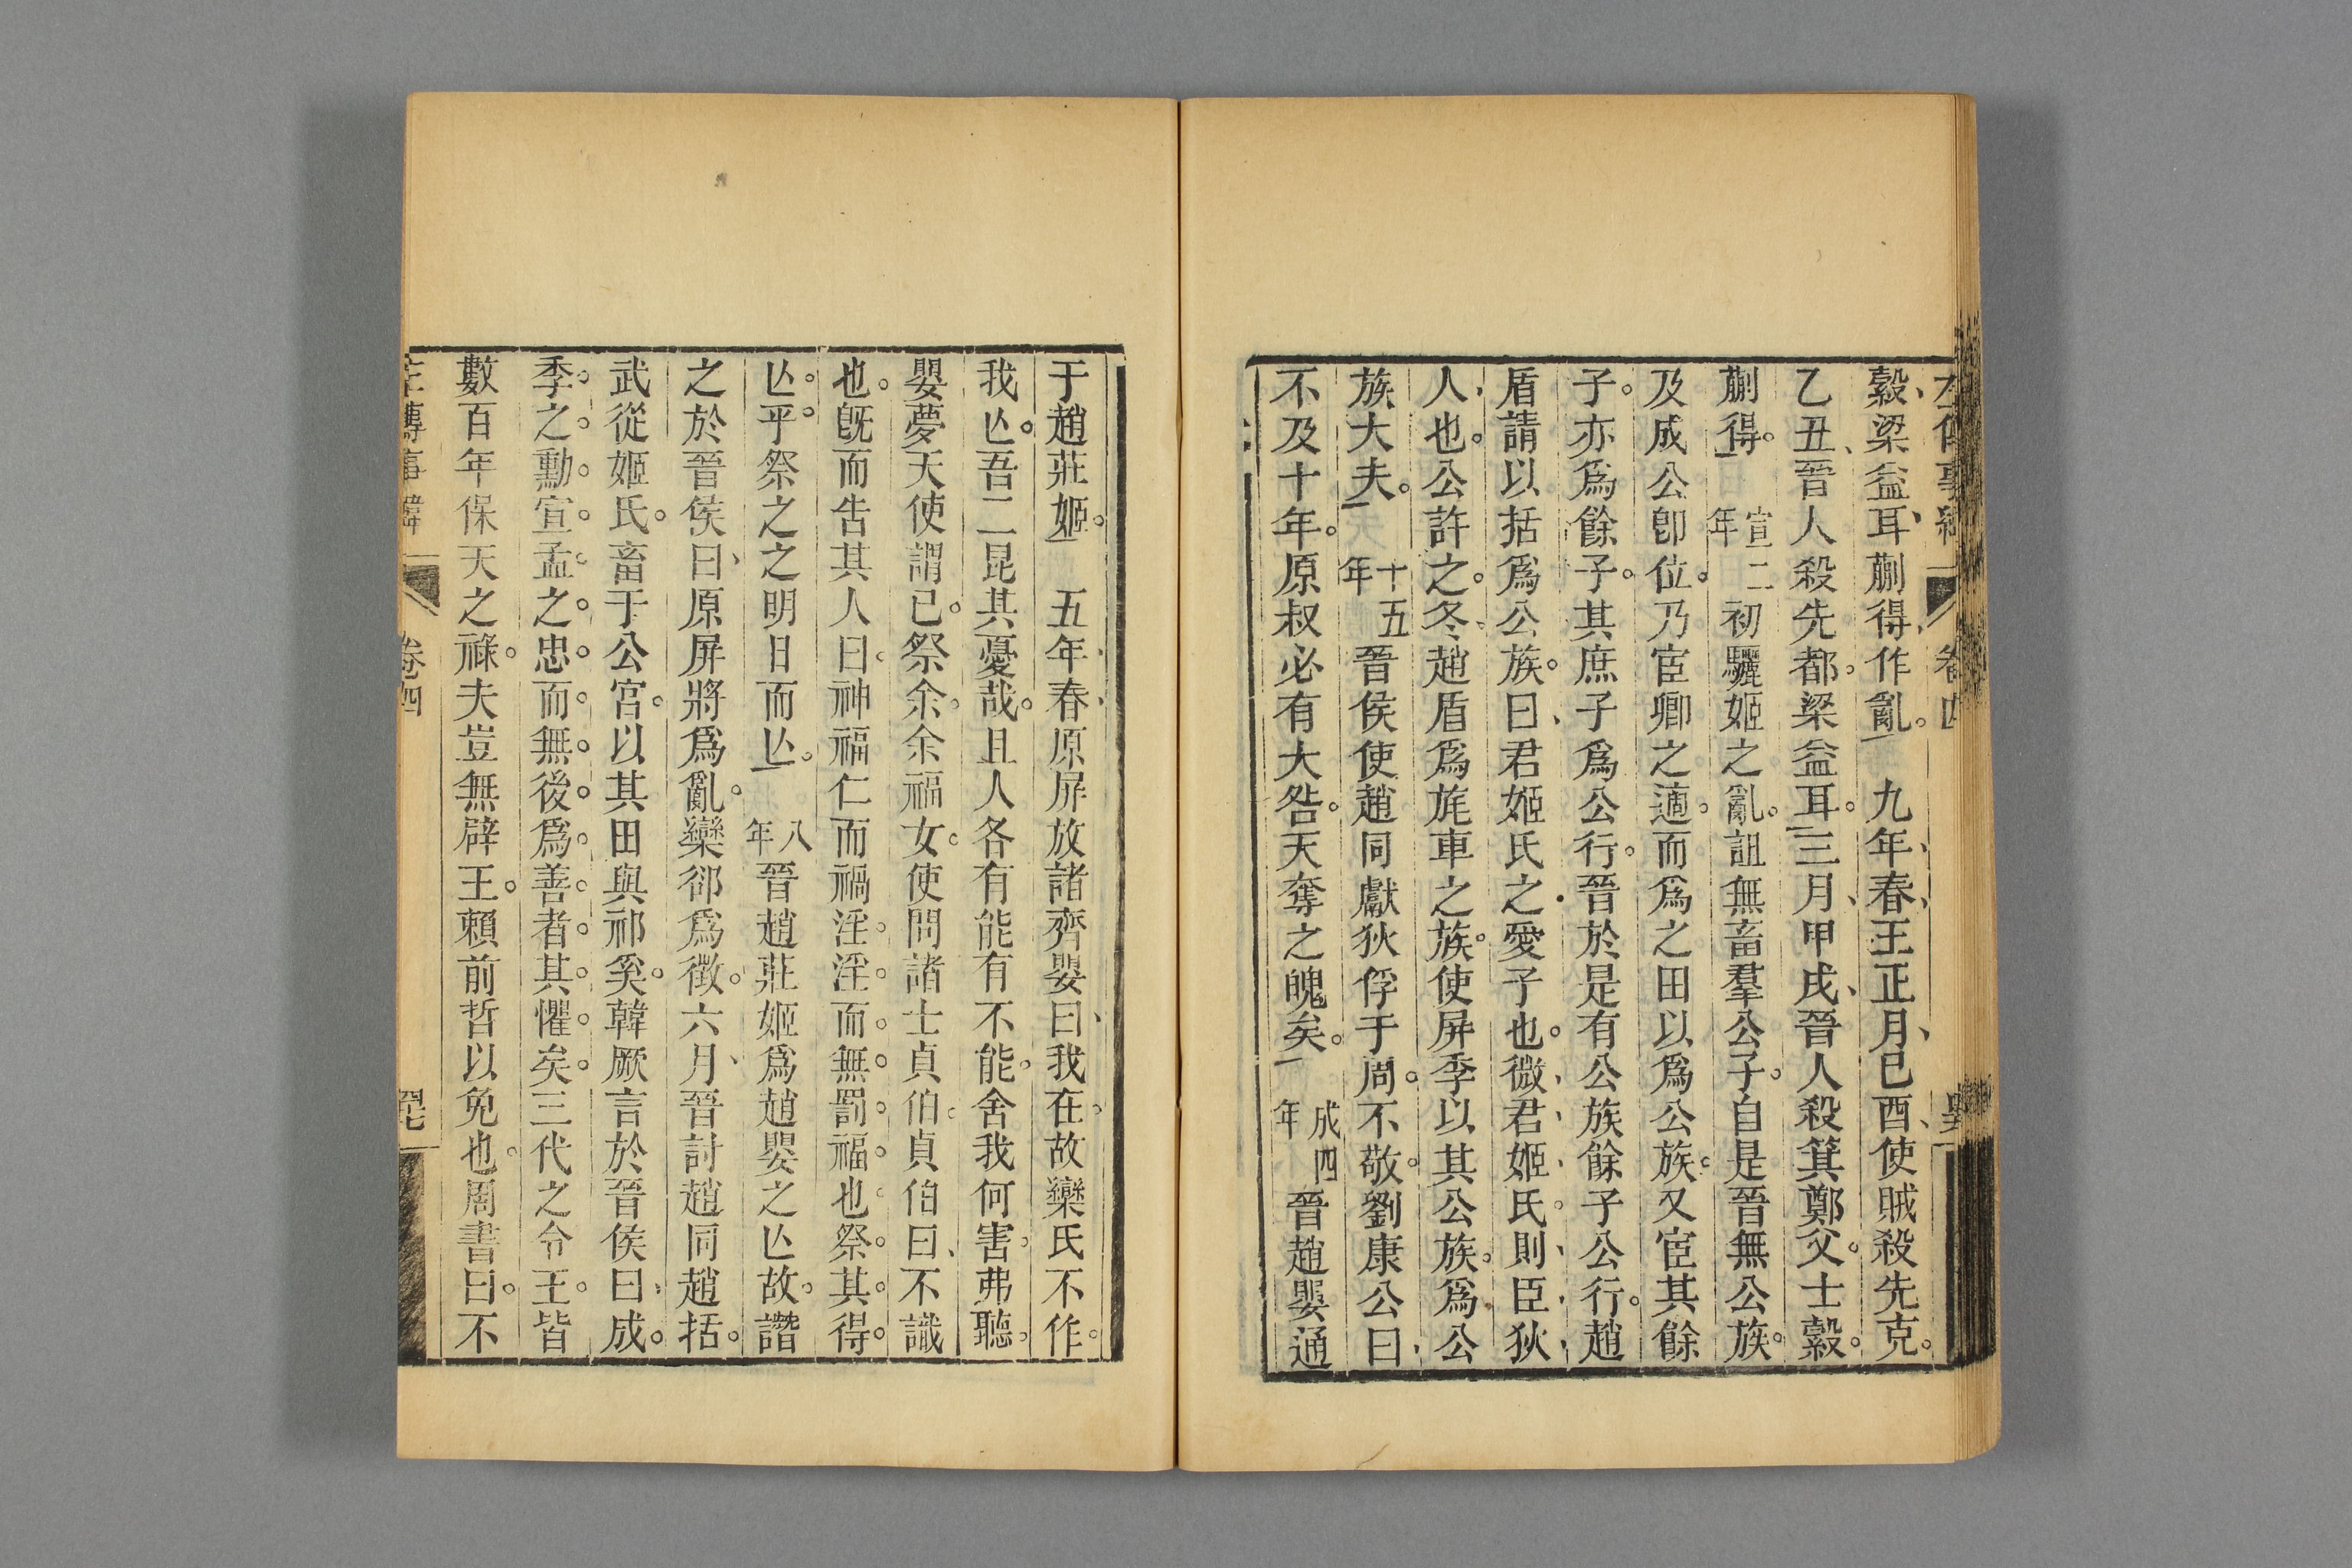 縠梁益耳蒯得作亂　九年春王正月己酉使賊殺先克
乙丑晉人殺先都梁益耳三月甲戌晉人殺箕鄭父士縠
蒯得宣二年初驪姬之亂詛無畜羣公子自是晉無公族
及成公卽位乃宦卿之適而爲之田以爲公族又宦其餘
子亦爲餘子其庶子爲公行晉於是有公族餘子公行趙
盾請以括爲公族曰君姬氏之愛子也微君姬氏則臣狄
人也公許之冬趙盾爲旄車之族使屏季以其公族爲公
族大夫十五年晉侯使趙同獻狄俘于周不敬劉康公曰
不及十年原叔必有大咎天奪之魄矣成四年晉趙嬰通
于趙莊姬　五年春原屏放諸齊嬰曰我在故欒氏不作
我亾吾二昆其憂哉且人各有能有不能舍我何害弗聽
嬰夢天使謂已祭余余福女使問諸士貞伯貞伯曰不識
也旣而告其人曰神福仁而禍淫淫而無罰福也祭其得
亾乎祭之之明日而亾八年晉趙莊姬爲趙嬰之亾故譖
之於晉侯曰原屏將爲亂欒郤爲徵六月晉討趙同趙括
武從姬氏畜于公宮以其田與祁奚韓厥言於晉侯曰成
季之勳宣孟之忠而無後爲善者其懼矣三代之令王皆
數百年保天之祿夫豈無辟王賴前哲以免也周書曰不
左傳事緯　卷四